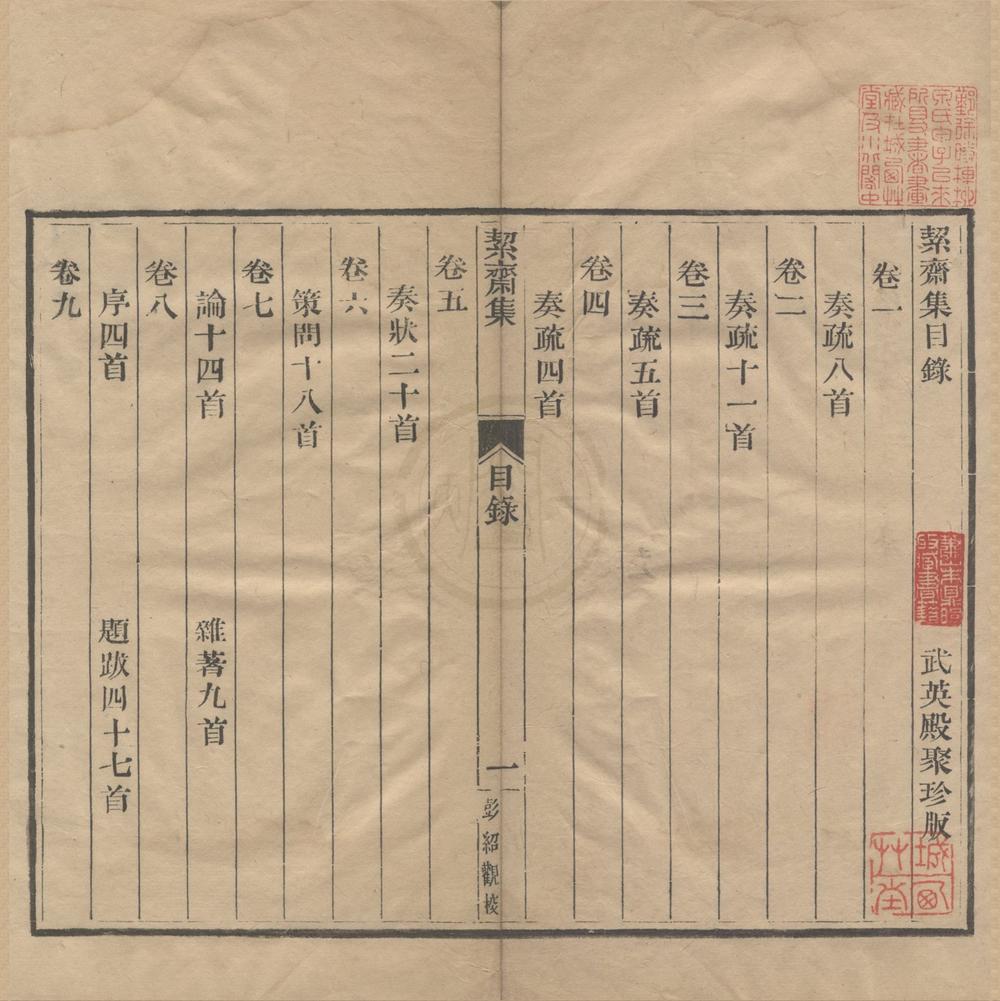 絜齋集目錄
武英殿聚珍版
卷一
奏疏八首
卷二
奏疏十一首
卷三
奏疏五首
卷四
奏疏四首
絜齋集
目錄
一
彭紹觀校
卷五
奏狀二十首
卷六
策問十八首
卷七
論十四首 雜著九首
卷八
序四首 題跋四十七首
卷九